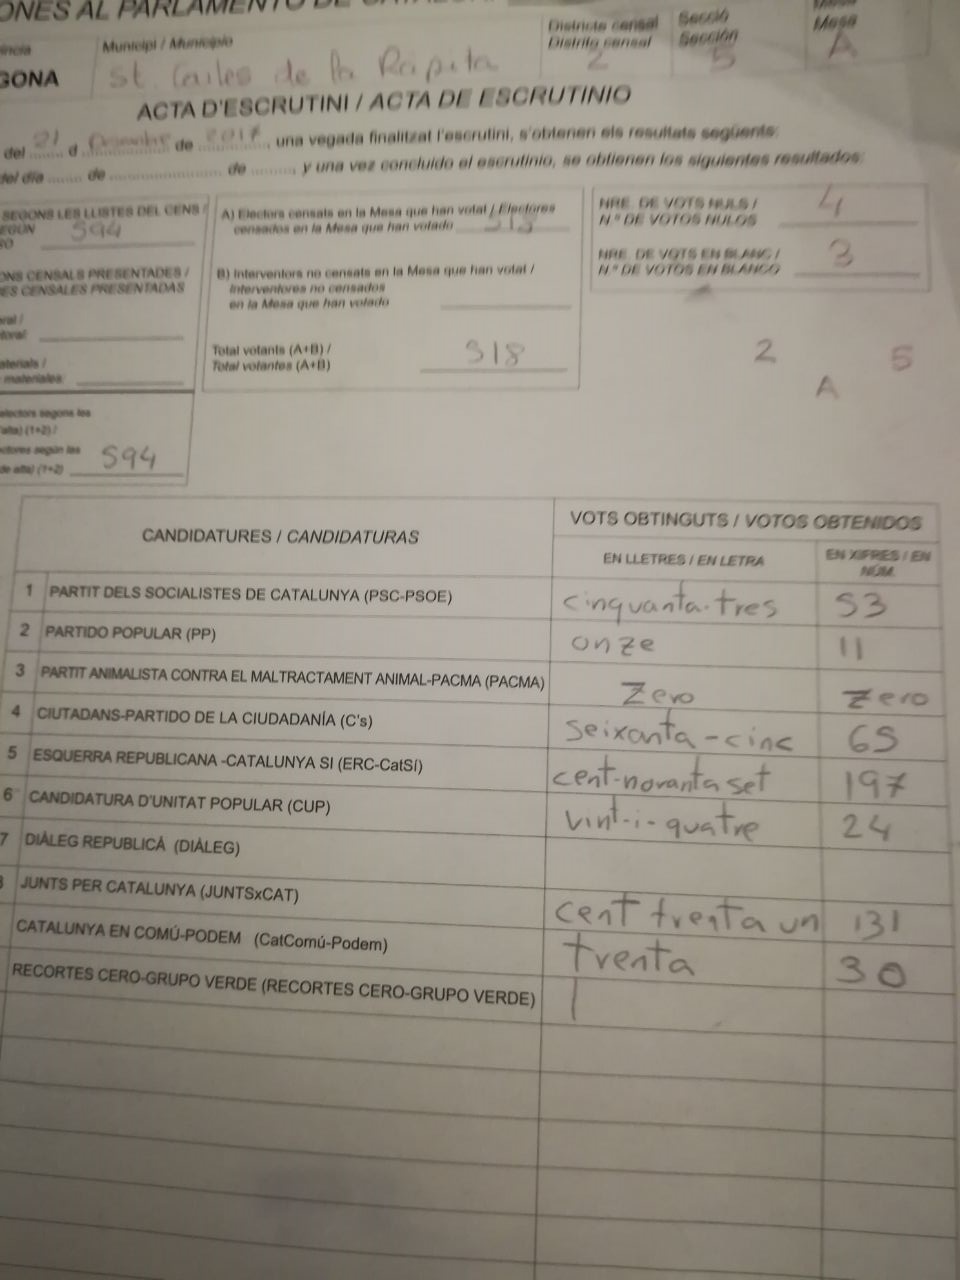 ONES AL PARLAMENTO DE
Municipi / Municipio
Districte censal
Distrito censal
Secció
Sección
Mesa
GONA
St. Carles de la Ràpita
2
5
A
ACTA D'ESCRUTINI / ACTA DE ESCRUTINIO
del 21 d Desembre de 2017, una vegada finalitzat l'escrutini, s'obtenen els resultats següents:
del día ....... de ........................ de ........., y una vez concluido el escrutinio, se obtienen los siguientes resultados:
SEGONS LES LLISTES DEL CENS /
594
A) Electors censats en la Mesa que han votat / Electores
censados en la Mesa que han votado
NRE. DE VOTS NULS /
N.º DE VOTOS NULOS
4
NRE. DE VOTS EN BLANC /
N.º DE VOTOS EN BLANCO
3
ONS CENSALS PRESENTADES /
ES CENSALES PRESENTADAS
B) Interventors no censats en la Mesa que han votat /
Interventores no censados
en la Mesa que han votado
Total votants (A+B) /
Total votantes (A+B)
518
2
5
A
materiales:
electors segons les
alta) (1+2) /
ectores según las
de alta) (1+2)
594
CANDIDATURES / CANDIDATURAS
VOTS OBTINGUTS / VOTOS OBTENIDOS
EN LLETRES / EN LETRA
EN XIFRES / EN
NÚM.
1 PARTIT DELS SOCIALISTES DE CATALUNYA (PSC-PSOE) cinquanta-tres 53
2 PARTIDO POPULAR (PP) onze 11
3 PARTIT ANIMALISTA CONTRA EL MALTRACTAMENT ANIMAL-PACMA (PACMA) Zero Zero
4 CIUTADANS-PARTIDO DE LA CIUDADANÍA (C's) seixanta-cinc 65
5 ESQUERRA REPUBLICANA -CATALUNYA SI (ERC-CatSí) cent-noranta set 197
6 CANDIDATURA D'UNITAT POPULAR (CUP) vint-i-quatre 24
7 DIÀLEG REPUBLICÀ (DIÀLEG)
JUNTS PER CATALUNYA (JUNTSxCAT) cent trenta un 131
CATALUNYA EN COMÚ-PODEM (CatComú-Podem) trenta 30
RECORTES CERO-GRUPO VERDE (RECORTES CERO-GRUPO VERDE)